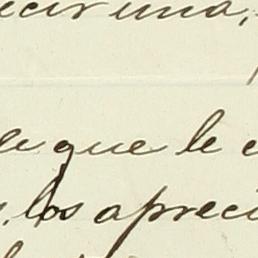 ecir una,
le que le c
, los apreci